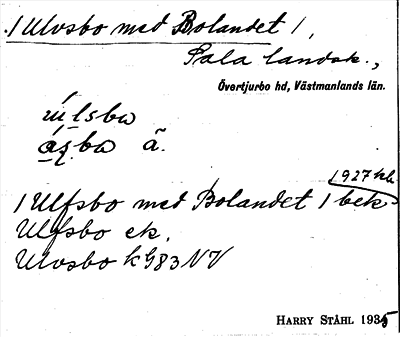 / Ulvsbo med Bolandet /,
Sala landsk.,
Övertjurbo hd, Västmanlands län.
úlsba
ba ã.
1927 hb
/ Ulfsbo med Bolandet / bek
Ulfsbo ek.
Ulvsbo kG83NV
HARRY STÅHL 1935